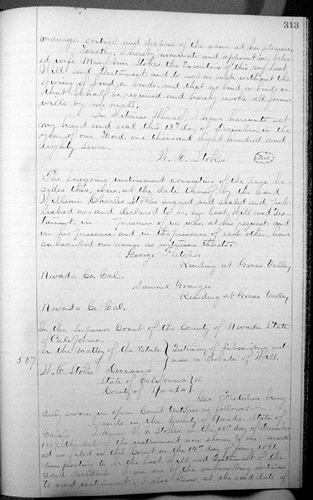 313
manage, control and dispose of the same at her pleasure,
Lastly, I hereby nominate and appoint my belov-
ed wife Mary Ann Stokes the Executrix of this my last
Will and Testament, and to act as such without the
giving of bond or bonds, and that no bond or bonds in
that behalf be required and hereby revoke all former
wills by me made,
In Witness Whereof, I have hereunto set
my hand and seal this 13th day of December, in the
year of our Lord one thousand eight hundred and
eighty seven.
W. C. Stokes
The foregoing instrument consisting of the page be-
sides this, was, at the date thereof, by the said
William Charles Stokes signed and sealed and pub-
lished as, and declared to be, his last Will and Tes-
tament, in presence of us, who, at his request, and
in his presence, and in the presence of each other, have
subscribed our names as witnesses thereto.
George Fletcher
Residing at Grass Valley,
Nevada Co. Cal.
Samuel Granger
Residing at Grass Valley
Nevada Co. Cal.
In the Superior Court of the County of Nevada State
of California.
In the Matter of the Estate Testimony of Subscribing wit-
ness on Probate of Will.
507
W. C. Stokes Deceased
State of California ss
County of Nevada
Geo Fletcher being
duly sworn in open Court testifies as follows:
I reside in the County of Nevada, State of
1887, the date of the instrument now shown to me, mark-
ed as filed in this Court on the 14th day of January 1891,
purporting to be the last Will and Testament of the
said deceased. I am one of the subscribing witnesses
to said instrument. I also knew at the said date of